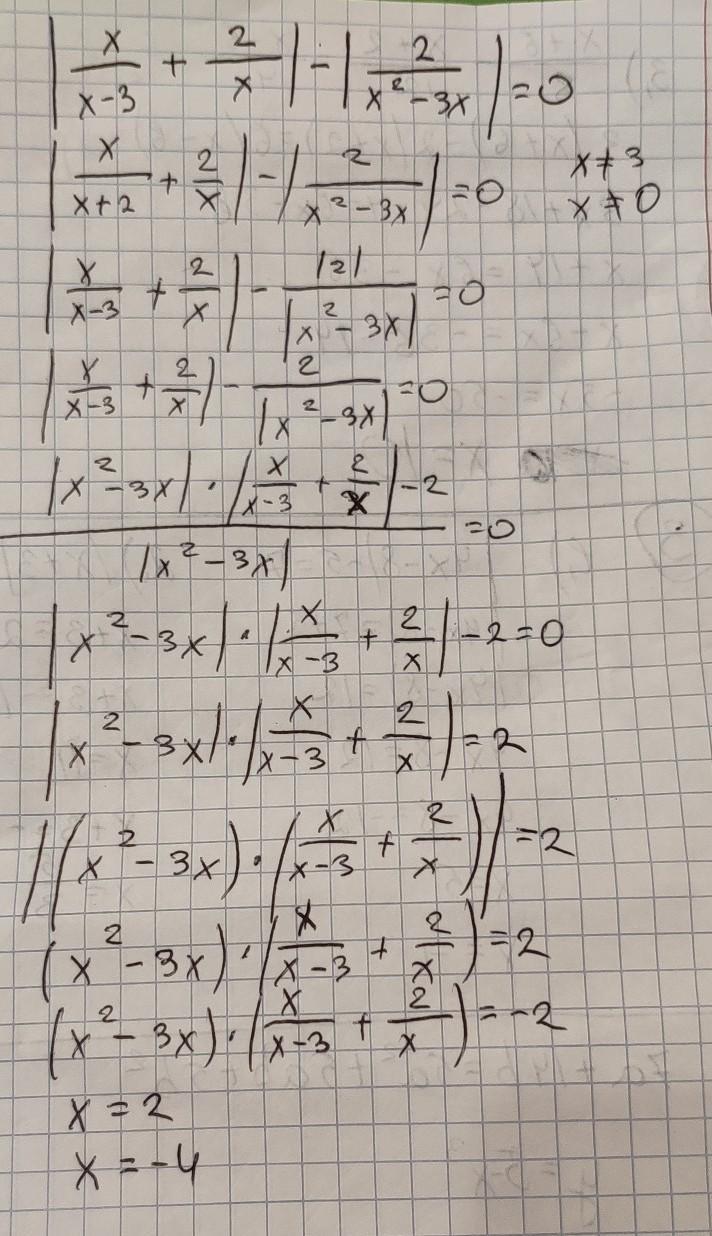 | x/(x-3) + 2/x | - | 2/(x² - 3x) | = 0
| x/(x+2) + 2/x | - | 2/(x² - 3x) | = 0   x ≠ 3
x ≠ 0
| x/(x-3) + 2/x | - |2|/|x² - 3x| = 0
| x/(x-3) + 2/x | - 2/|x² - 3x| = 0
(|x² - 3x| · | x/(x-3) + 2/x | - 2)/|x² - 3x| = 0
|x² - 3x| · | x/(x-3) + 2/x | - 2 = 0
|x² - 3x| · | x/(x-3) + 2/x | = 2
|(x² - 3x) · ( x/(x-3) + 2/x )| = 2
(x² - 3x) · ( x/(x-3) + 2/x ) = 2
(x² - 3x) · ( x/(x-3) + 2/x ) = -2
x = 2
x = -4